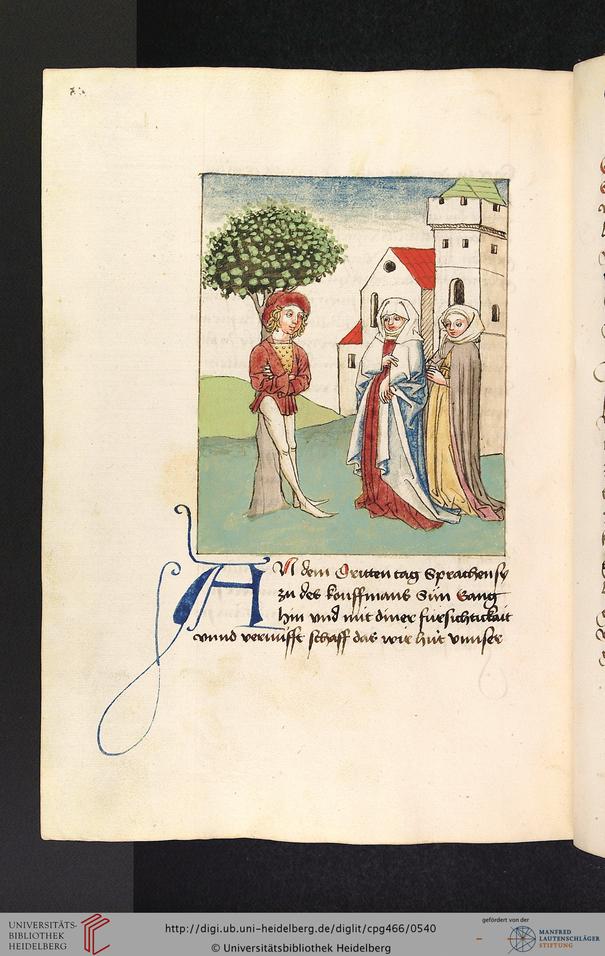 AN dem Dritten tag Sprachen sy
zu des kouffmans Sun Gang
hin vnd mit diner fürsichtickait
vnnd vernufft schaff das wir hüt vnnser
UNIVERSITÄTS-
BIBLIOTHEK
HEIDELBERG
http://digi.ub.uni-heidelberg.de/diglit/cpg466/0540
© Universitätsbibliothek Heidelberg
gefördert von der
MANFRED
LAUTENSCHLÄGER
STIFTUNG